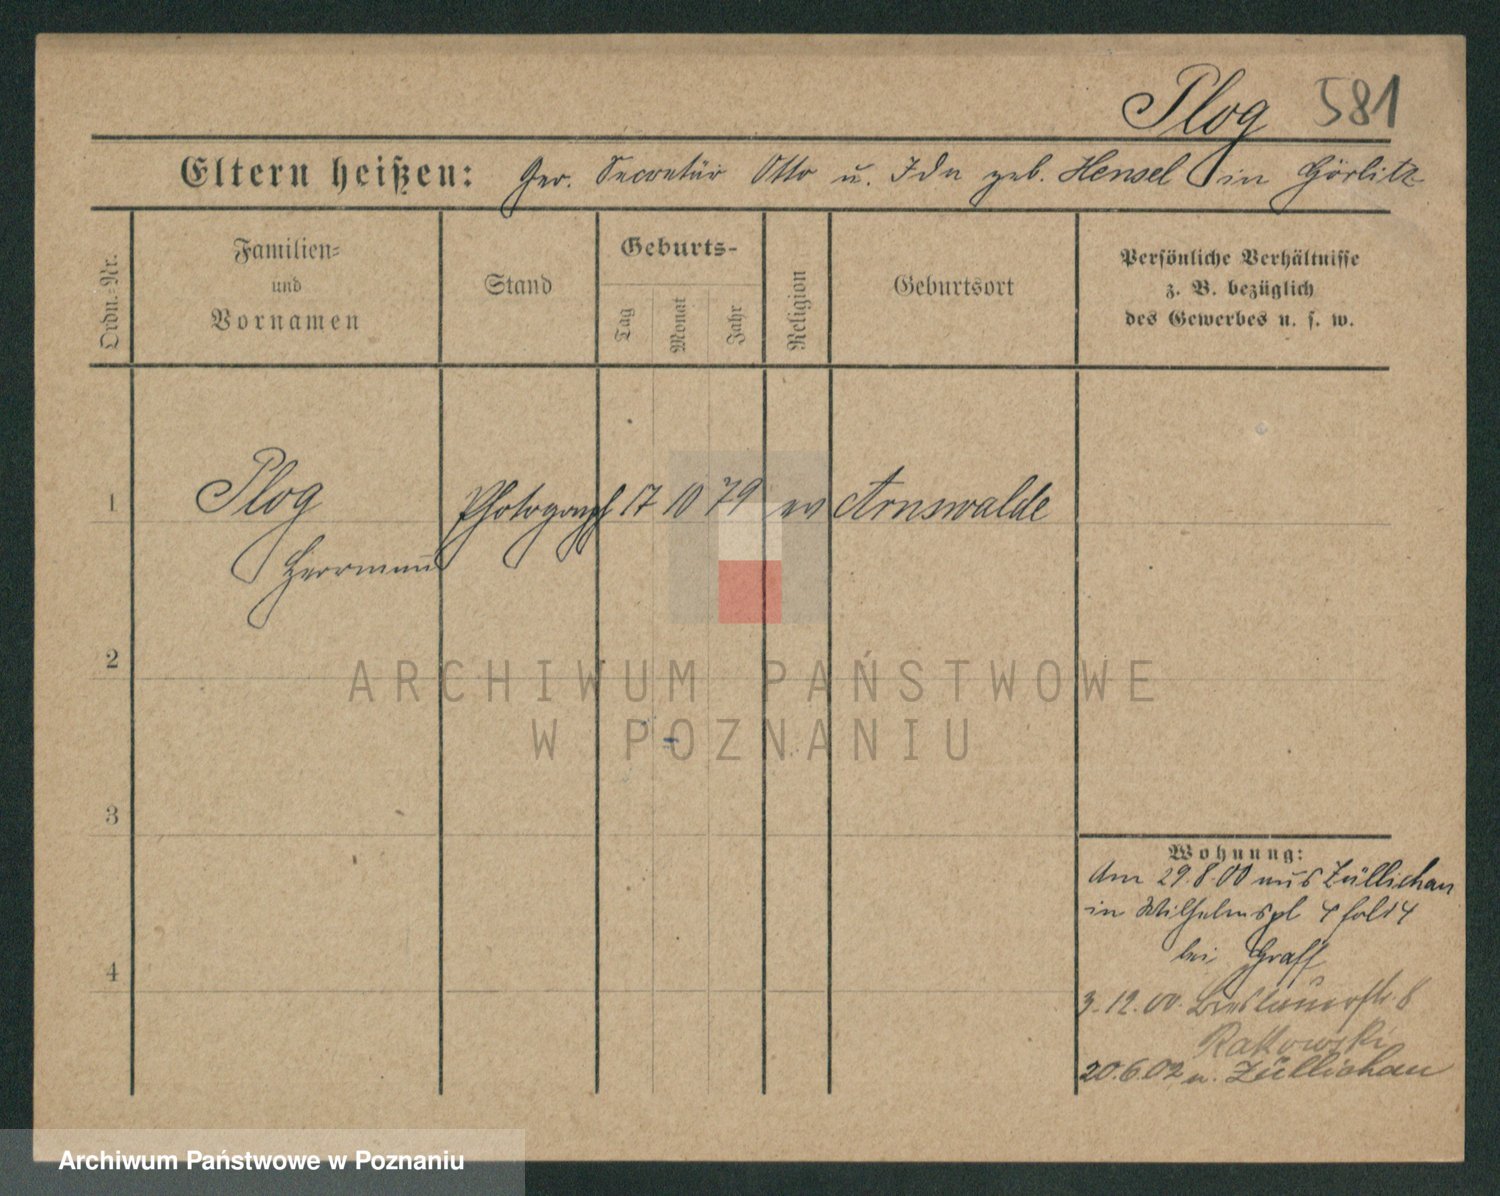 Plog 581
Eltern heißen: Ger. Secretär Otto u. Ida geb. Hensel in Görlitz
Ordn.-Nr.
Familien- und Vornamen
Stand
Geburts-
Tag Monat Jahr
Religion
Geburtsort
Persönliche Verhältnisse
z. B. bezüglich
des Gewerbes u. s. w.
1 Plog Photograph 17 10 79 ev Arnswalde
Herrmann
2
ARCHIWUM PAŃSTWOWE
W POZNANIU
3
Wohnung:
Am 29.8.00 aus Züllichau
in Wilhelmspl 4
bei Graff
4
3.12.00. Breslauerstr. 8
Rakowski
20.6.02 n. Züllichau
Archiwum Państwowe w Poznaniu